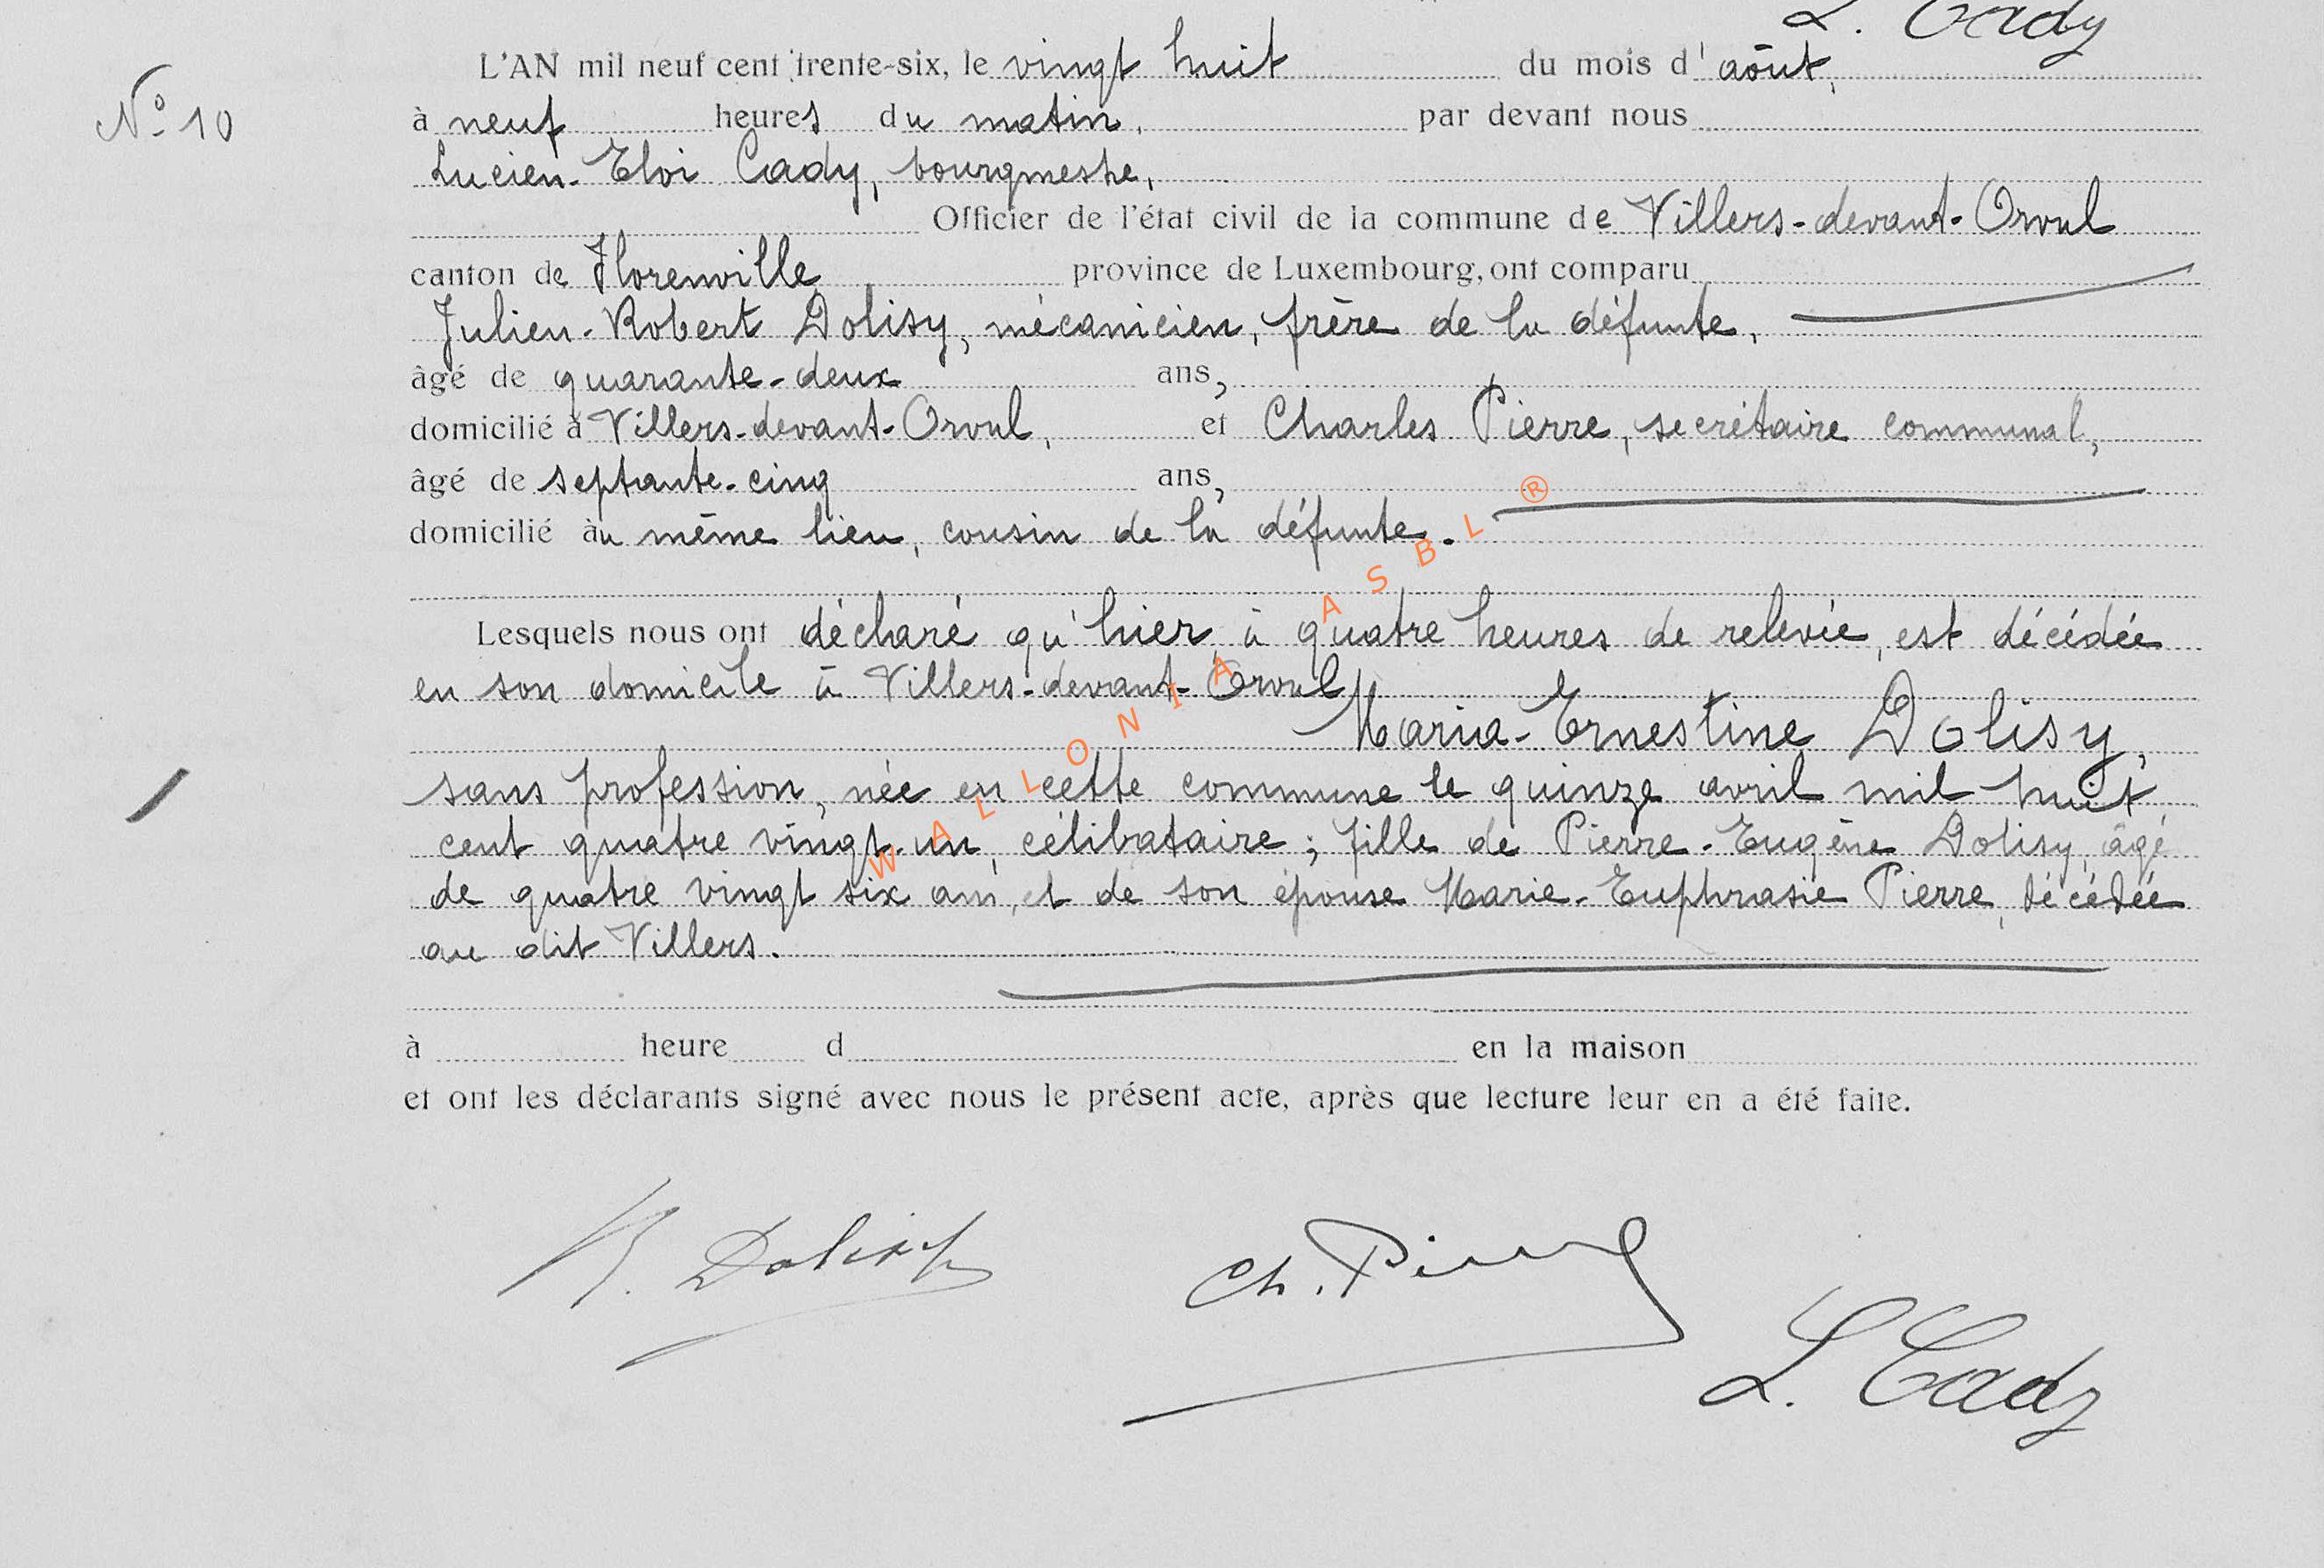 L. Cady
L'AN mil neuf cent trente-six, le vingt huit du mois d'août,
N° 10
à neuf heures du matin, par devant nous
Lucien-Eloi Cady, bourgmestre,
Officier de l'état civil de la commune de Villers-devant-Orval
canton de Florenville province de Luxembourg, ont comparu
Julien-Robert Dolisy, mécanicien, frère de la défunte,
âgé de quarante-deux ans,
domicilié à Villers-devant-Orval, et Charles Pierre, secrétaire communal,
âgé de septante-cinq ans,
domicilié àu même lieu, cousin de la défunte.
Lesquels nous ont déclaré qu'hier, à quatre heures de relevée, est décédée
en son domicile à Villers-devant-Orval
Maria-Ernestine Dolisy,
sans profession, née en cette commune le quinze avril mil huit
cent quatre vingt-un, célibataire; fille de Pierre-Eugène Dolisy, âgé
de quatre vingt six ans, et de son épouse Marie-Euphrasie Pierre, décédée
au dit Villers.
à heure d en la maison
et ont les déclarants signé avec nous le présent acte, après que lecture leur en a été faite.
R. Dolisy
Ch. Pierre
L. Cady
WALLONIA ASBL ®